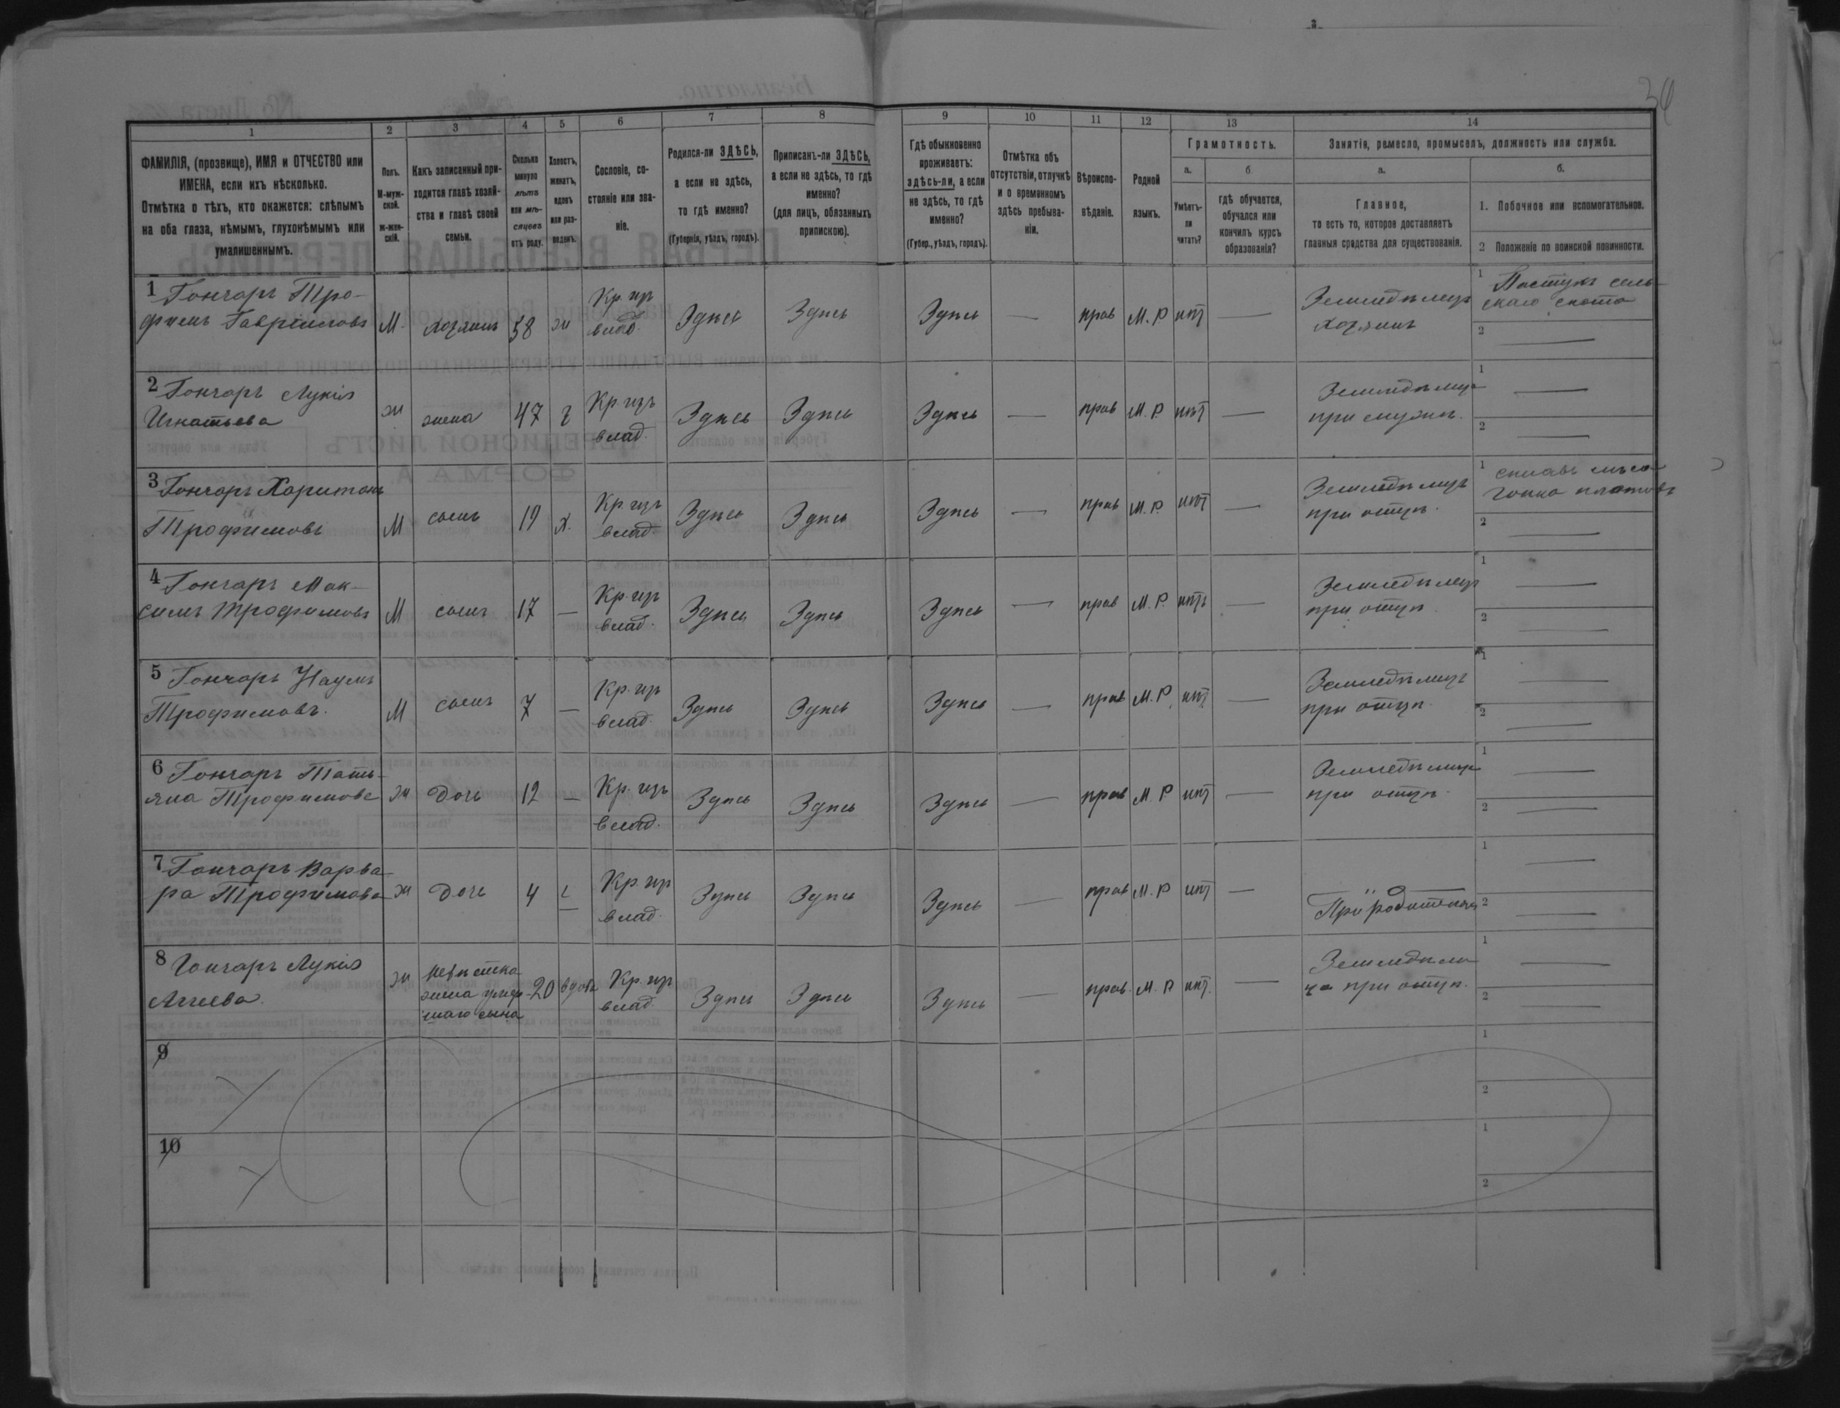 34
1 2 3 4 5 6 7 8 9 10 11 12 13 14
ФАМИЛІЯ, (прозвище), ИМЯ и ОТЧЕСТВО или ИМЕНА, если ихъ нѣсколько.
Отмѣтка о тѣхъ, кто окажется: слѣпымъ на оба глаза, нѣмымъ, глухонѣмымъ или умалишеннымъ.
Полъ. М-мужской. ж-женскій.
Какъ записанный приходится главѣ хозяйства и главѣ своей семьи.
Сколько минуло лѣтъ или мѣсяцевъ отъ роду.
Холостъ, женатъ, вдовъ или разведенъ.
Сословіе, состояніе или званіе.
Родился-ли ЗДѢСЬ, а если не здѣсь, то гдѣ именно?
(Губернія, уѣздъ, городъ).
Приписанъ-ли ЗДѢСЬ, а если не здѣсь, то гдѣ именно?
(для лицъ, обязанныхъ припискою).
Гдѣ обыкновенно проживаетъ: здѣсь-ли, а если не здѣсь, то гдѣ именно?
(Губер., уѣздъ, городъ).
Отмѣтка объ отсутствіи, отлучкѣ и о временномъ здѣсь пребываніи.
Вѣроисповѣданіе.
Родной языкъ.
Грамотность.
а. Умѣетъ-ли читать?
б. гдѣ обучается, обучался или кончилъ курсъ образованія?
Занятія, ремесло, промыселъ, должность или служба.
а. Главное, то есть то, которое доставляетъ главныя средства для существованія.
б.
1. Побочное или вспомогательное.
2 Положеніе по воинской повинности.
1 Гончаръ Трофимъ Гавриловъ М. хозяинъ 58 ж Кр. изъ влад. Здѣсь Здѣсь Здѣсь — прав М. Р нѣт — Земледѣлецъ хозяинъ 1 Пастухъ сельскаго скота 2 —
2 Гончаръ Лукія Игнатьева ж жена 47 з Кр изъ влад. Здѣсь Здѣсь Здѣсь — прав М. Р нѣт — Земледѣлец при мужѣ. 1 — 2 —
3 Гончаръ Харитонъ Трофимовъ М сынъ 19 х. Кр. изъ влад Здѣсь Здѣсь Здѣсь — прав М. Р нѣт — Земледѣлецъ при отцѣ. 1 сплавъ лѣса гонка плотовъ 2 —
4 Гончаръ Максимъ Трофимовъ М сынъ 17 — Кр. изъ влад. Здѣсь Здѣсь Здѣсь — прав М. Р. нѣтъ — Земледѣлецъ при отцѣ. 1 — 2 —
5 Гончаръ Наумъ Трофимовъ. М сынъ 7 — Кр. изъ влад Здѣсь Здѣсь Здѣсь — прав М. Р. нѣт — Земледѣлецъ при отцѣ. 1 — 2 —
6 Гончаръ Татьяна Трофимова ж Дочь 12 — Кр. изъ влад. Здѣсь Здѣсь Здѣсь — прав М. Р нѣт — Земледѣлец при отцѣ. 1 — 2 —
7 Гончаръ Варвара Трофимова ж Дочь 4 — Кр. изр влад. Здѣсь Здѣсь Здѣсь — прав М. Р нѣт — При родителяхъ 1 — 2 —
8 Гончаръ Лукія ж невѣстка жена сына 20 вдова Кр. изр влад. Здѣсь Здѣсь Здѣсь — прав. М. Р нѣт. — при отцѣ. 1 — 2 —
9 1 2
10 1 2